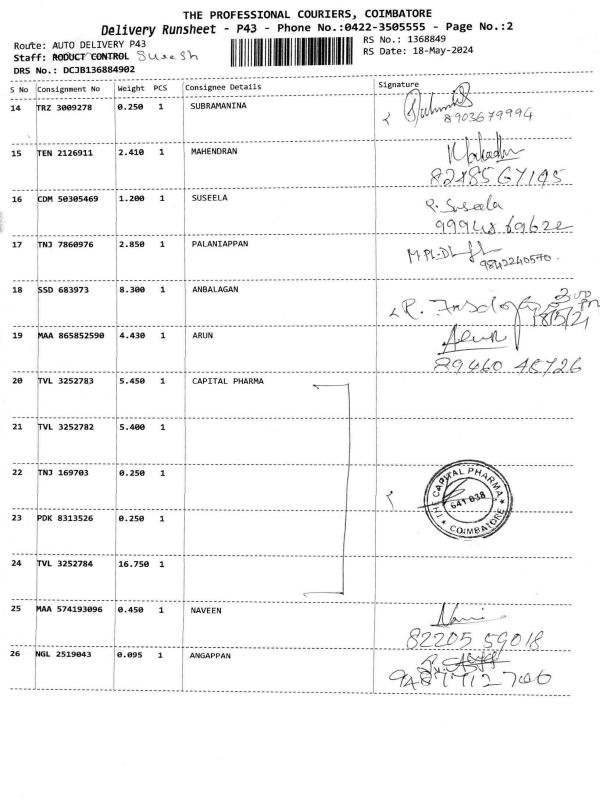 THE PROFESSIONAL COURIERS, COIMBATORE
Delivery Runsheet - P43 - Phone No.:0422-3505555 - Page No.:2
Route: AUTO DELIVERY P43
RS No.: 1368849
Staff: RODUCT CONTROL Suresh
RS Date: 18-May-2024
DRS No.: DCJB136884902
S No Consignment No Weight PCS Consignee Details Signature
14 TRZ 3009278 0.250 1 SUBRAMANINA
8903679994
15 TEN 2126911 2.410 1 MAHENDRAN
82485 67195
16 CDM 50305469 1.200 1 SUSEELA P. Suseela
99948 69622
17 TNJ 7860976 2.850 1 PALANIAPPAN
9842240570.
18 SSD 683973 8.300 1 ANBALAGAN
18/5/24
19 MAA 865852590 4.430 1 ARUN Arun
89460 48726
20 TVL 3252783 5.450 1 CAPITAL PHARMA
21 TVL 3252782 5.400 1
22 TNJ 169703 0.250 1
THE CAPITAL PHARMA
641 038
COIMBATORE
23 PDK 8313526 0.250 1
24 TVL 3252784 16.750 1
25 MAA 574193096 0.450 1 NAVEEN
82205 59018
26 NGL 2519043 0.095 1 ANGAPPAN